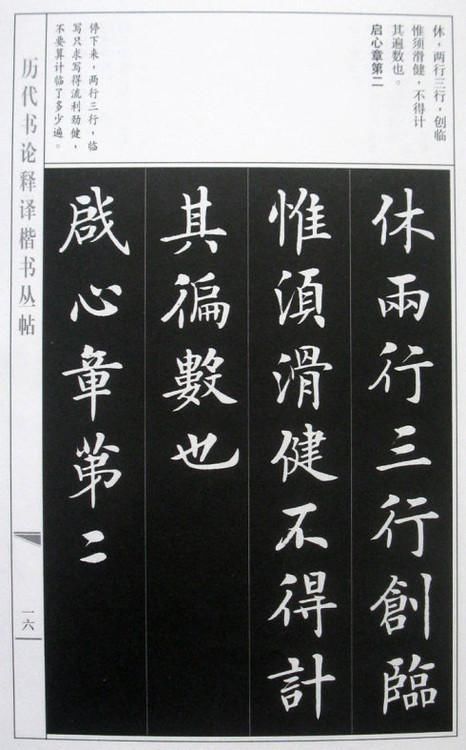 休，两行三行，创临
惟须滑健，不得计
其遍数也。
启心章第二
停下来，两行三行，临
写只求写得流利劲健，
不要算计临了多少遍。
休兩行三行創臨
惟須滑健不得計
其徧數也
啟心章第二
历代书论释译楷书丛帖
一六